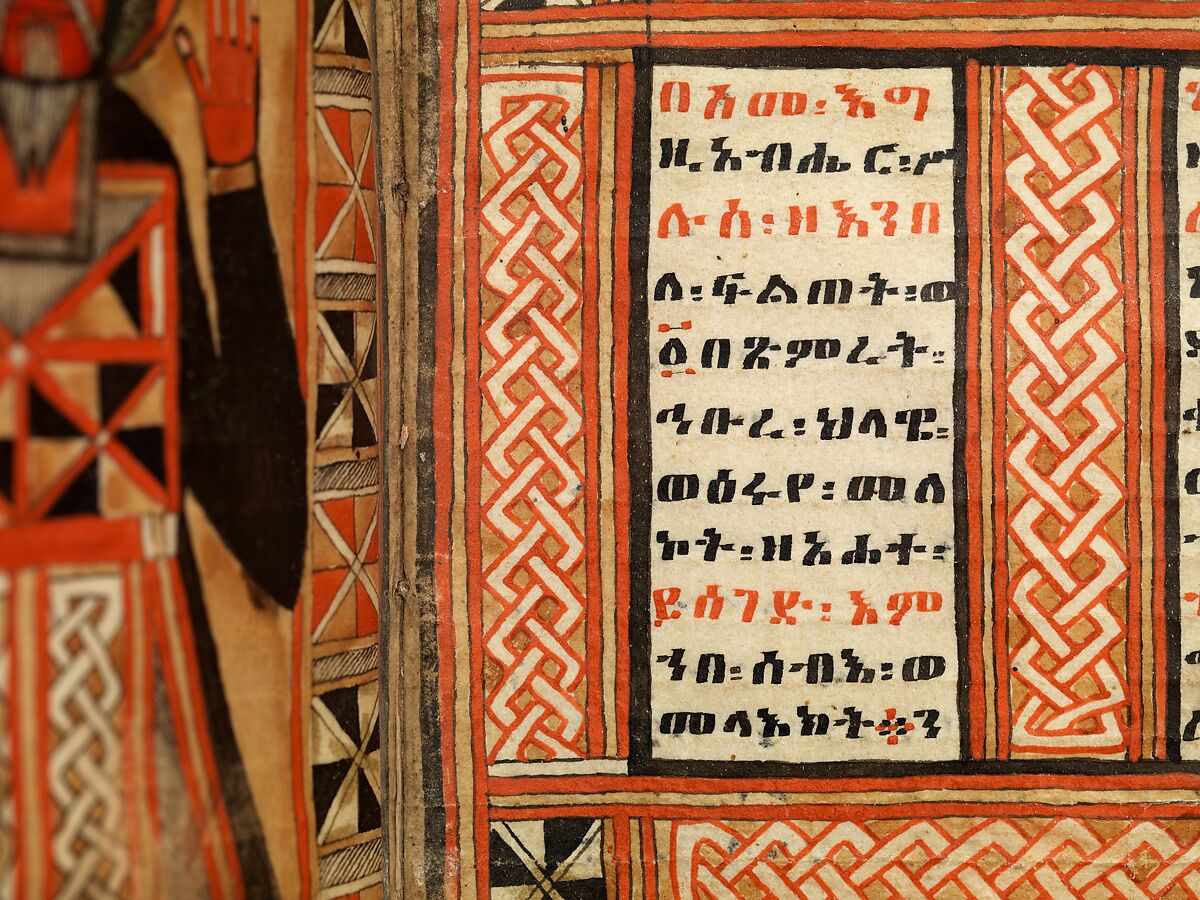 በስመ፡እግ
ዚአብሔር፡ሥ
ሉስ፡ዘእንበ
ለ፡ፍልጠት፡ወ
፩በጽምረት፡
ኅቡረ፡ህላዌ፡
ወዕሩየ፡መለ
ኮት፡ዘአሐተ፡
ይሰገድ፡እም
ኀበ፡ሰብእ፡ወ
መላእክት።ን